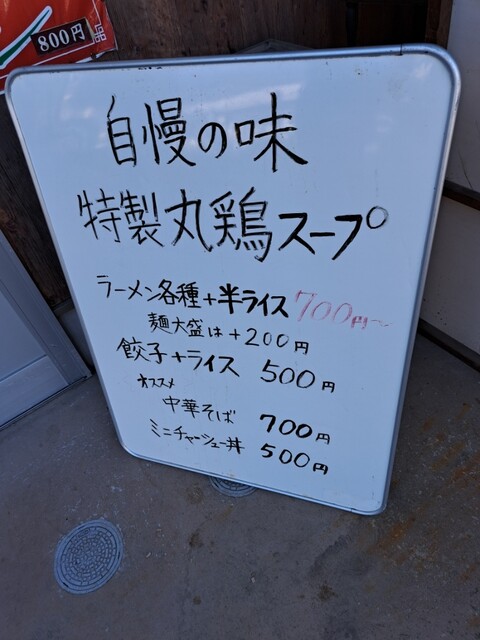 品
800円
自慢の味
特製丸鶏スープ
ラーメン各種+半ライス 700円~
麺大盛は+200円
餃子+ライス 500円
オススメ
中華そば 700円
ミニチャーシュー丼 500円